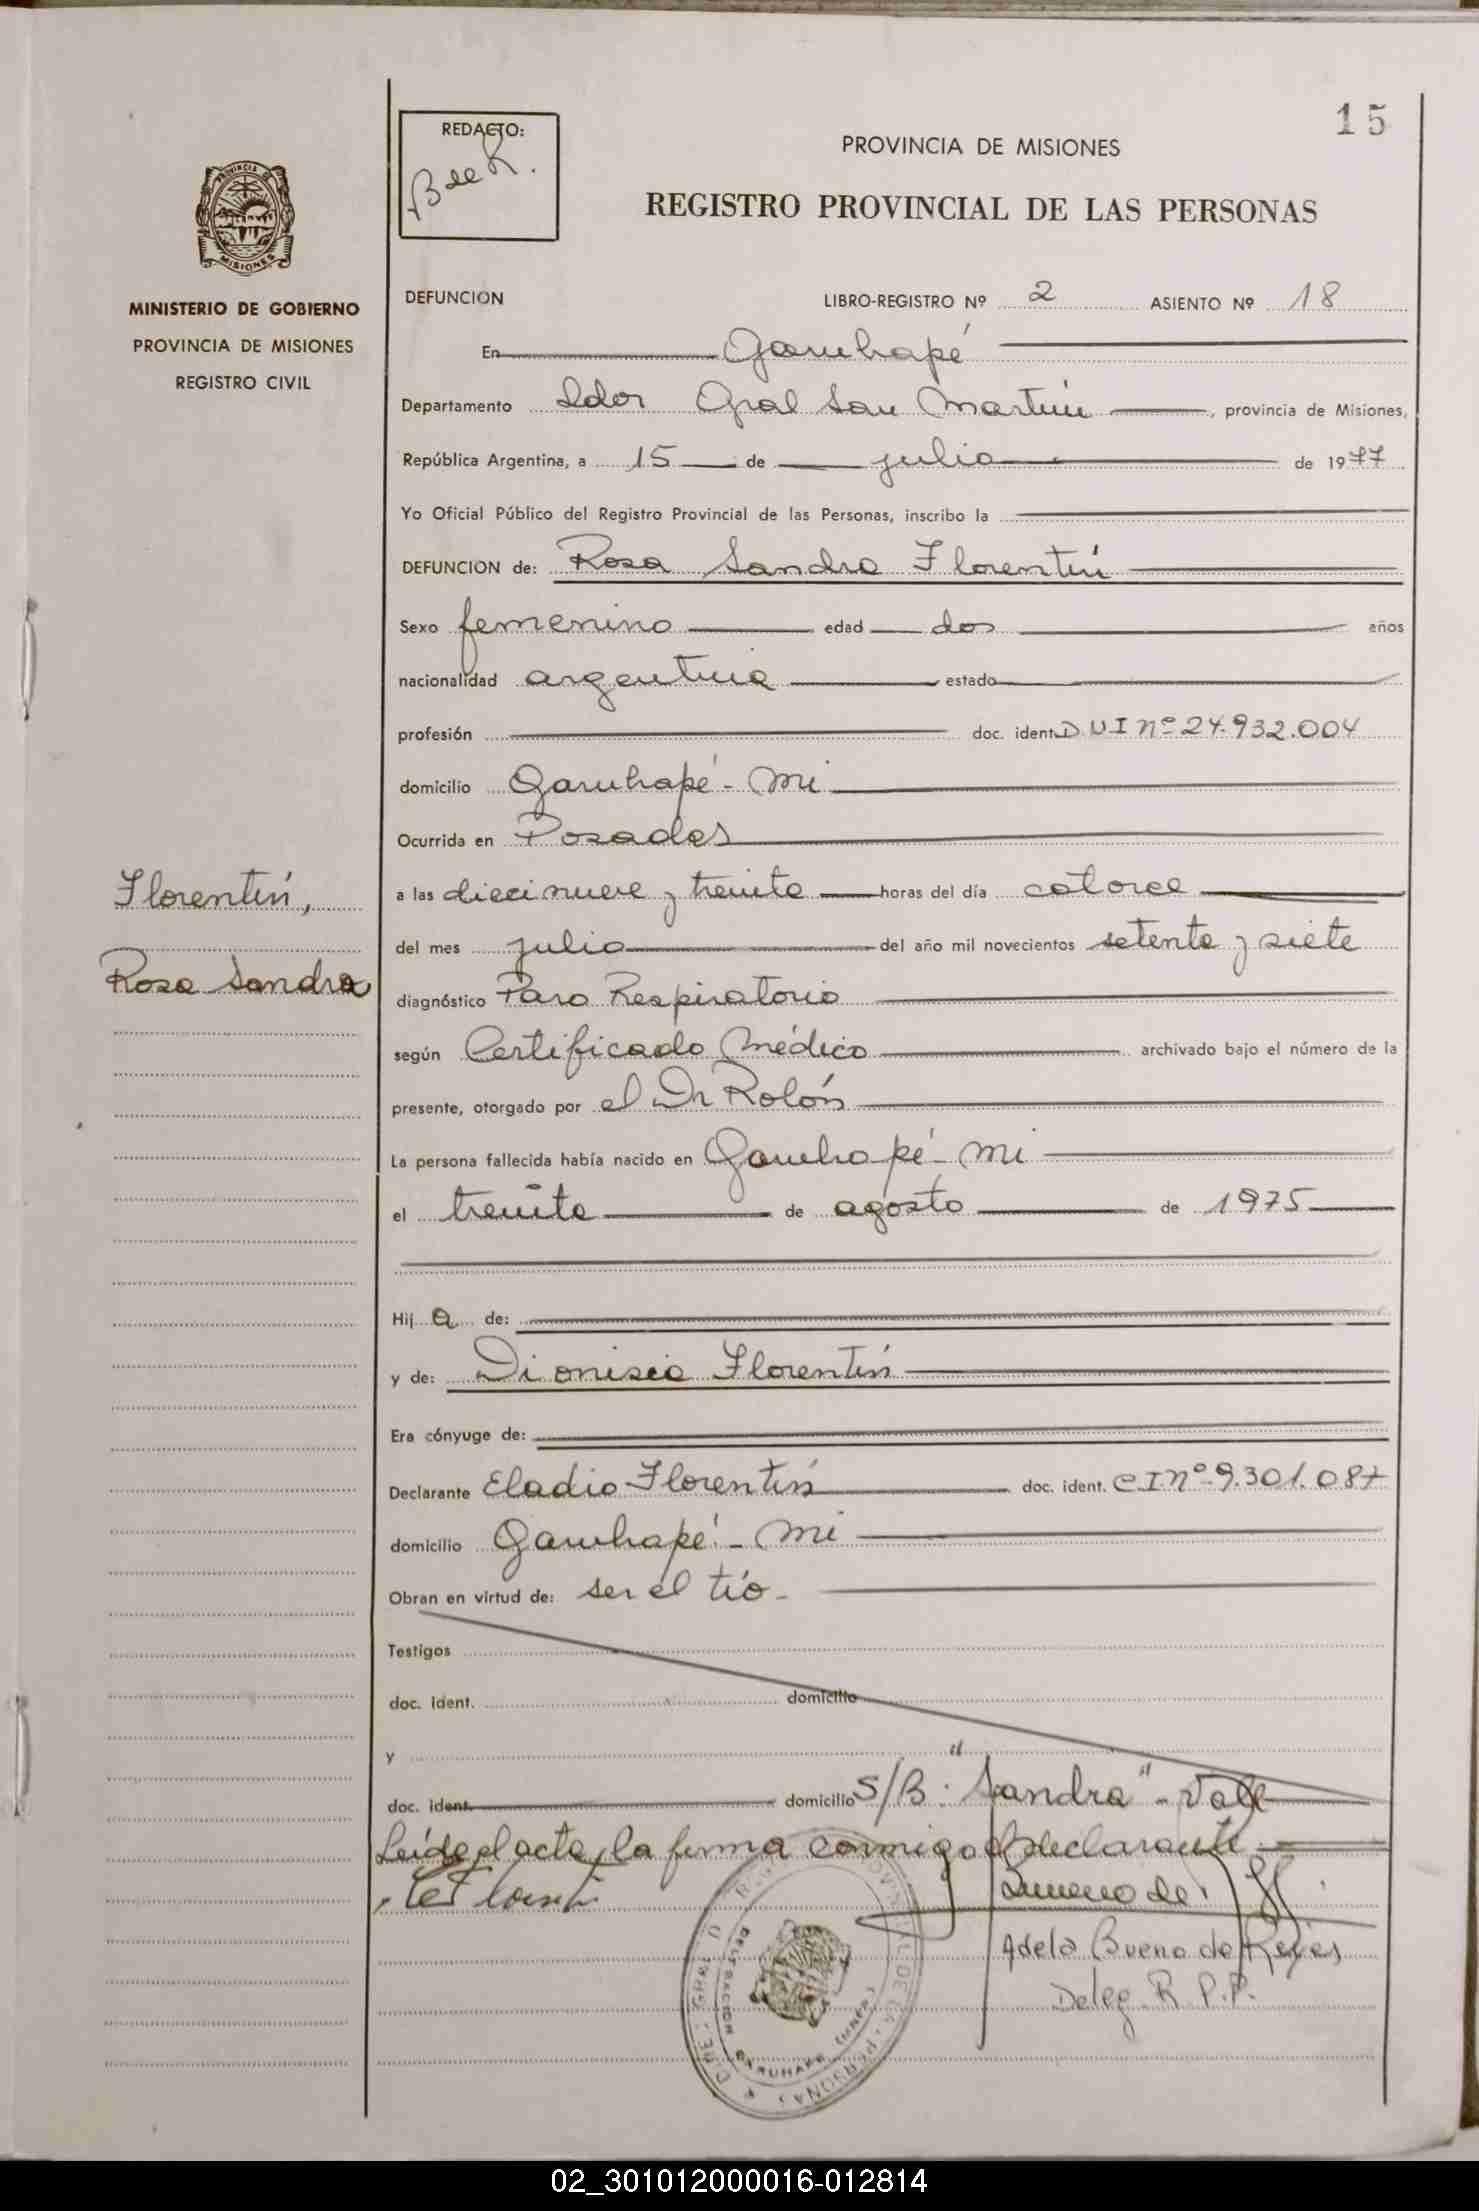 15
REDACTO:
B de R.
PROVINCIA DE MISIONES
REGISTRO PROVINCIAL DE LAS PERSONAS
PROVINCIA DE
MISIONES
MINISTERIO DE GOBIERNO
PROVINCIA DE MISIONES
REGISTRO CIVIL
DEFUNCION LIBRO-REGISTRO Nº 2 ASIENTO Nº 18
En Garuhapé
Departamento Ldor Gral San Martín, provincia de Misiones,
República Argentina, a 15 de julio de 1977
Yo Oficial Público del Registro Provincial de las Personas, inscribo la
DEFUNCION de: Rosa Sandra Florentín
Sexo femenino edad dos años
nacionalidad argentina estado
profesión doc. ident. D U I Nº 24.932.004
domicilio Garuhapé - Mi
Ocurrida en Posadas
Florentín,
Rosa Sandra
a las diecinueve y treinta horas del día catorce
del mes julio del año mil novecientos setenta y siete
diagnóstico Paro Respiratorio
según Certificado Médico archivado bajo el número de la
presente, otorgado por el Dr Rolón
La persona fallecida había nacido en Garuhapé - Mi
el treinta de agosto de 1975
Hij a de:
y de: Dionisia Florentín
Era cónyuge de:
Declarante Eladio Florentín doc. ident. C I Nº 9.301.087
domicilio Garuhapé - Mi
Obran en virtud de: ser el tío -
Testigos
doc. ident. domicilio
y
doc. ident. domicilio S/B: "Sandra" - Vale
Leída el acta, la firma conmigo el declarante
Adela Bueno de Reyes
Deleg. R. P. P.
02_301012000016-012814